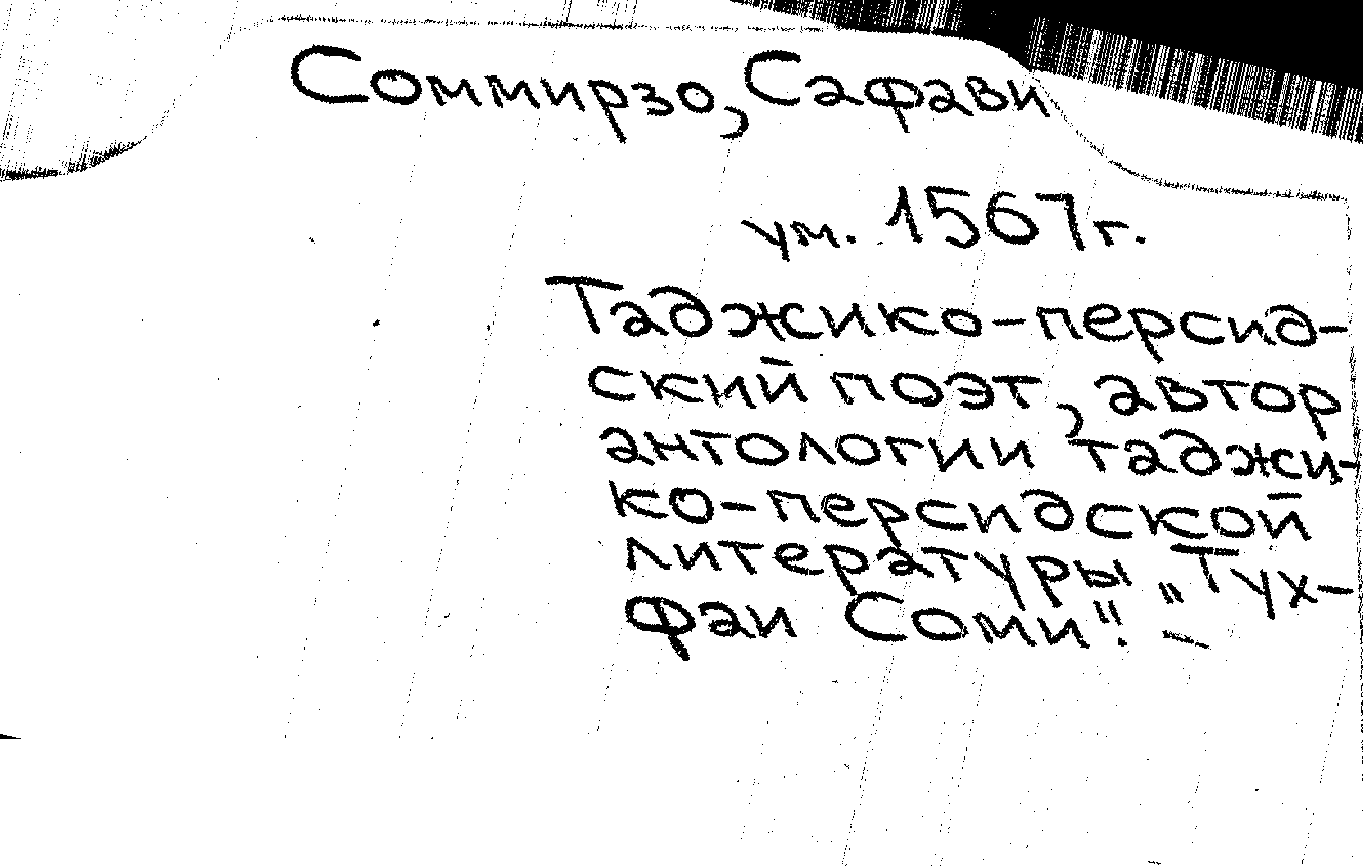 Соммирзо, Сафави
ум. 1567 г.
Таджико-персид-
ский поэт, автор
антологии таджи-
ко-персидской
литературы „Тух-
фаи Соми". –